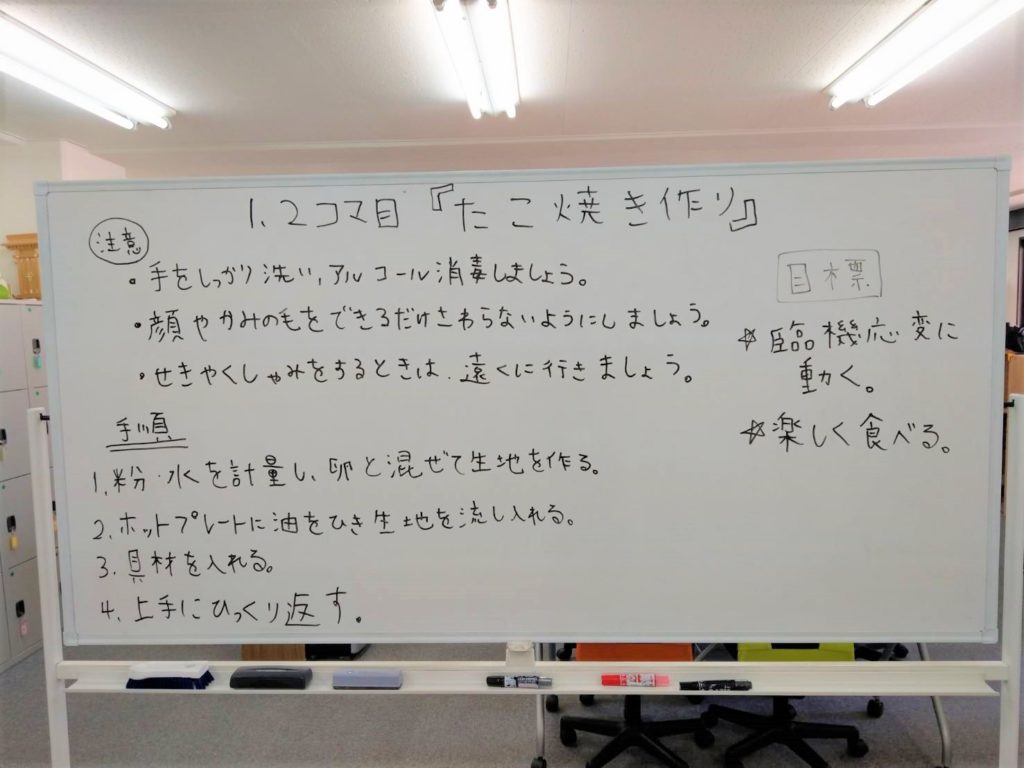 1、2コマ目『たこ焼き作り』
注意
・手をしっかり洗い、アルコール消毒しましょう。
・顔やかみの毛をできるだけさわらないようにしましょう。
・せきやくしゃみをするときは、遠くに行きましょう。
手順
1、粉・水を計量し、卵と混ぜて生地を作る。
2、ホットプレートに油をひき生地を流し入れる。
3、具材を入れる。
4、上手にひっくり返す。
目標
☆臨機応変に
動く。
☆楽しく食べる。